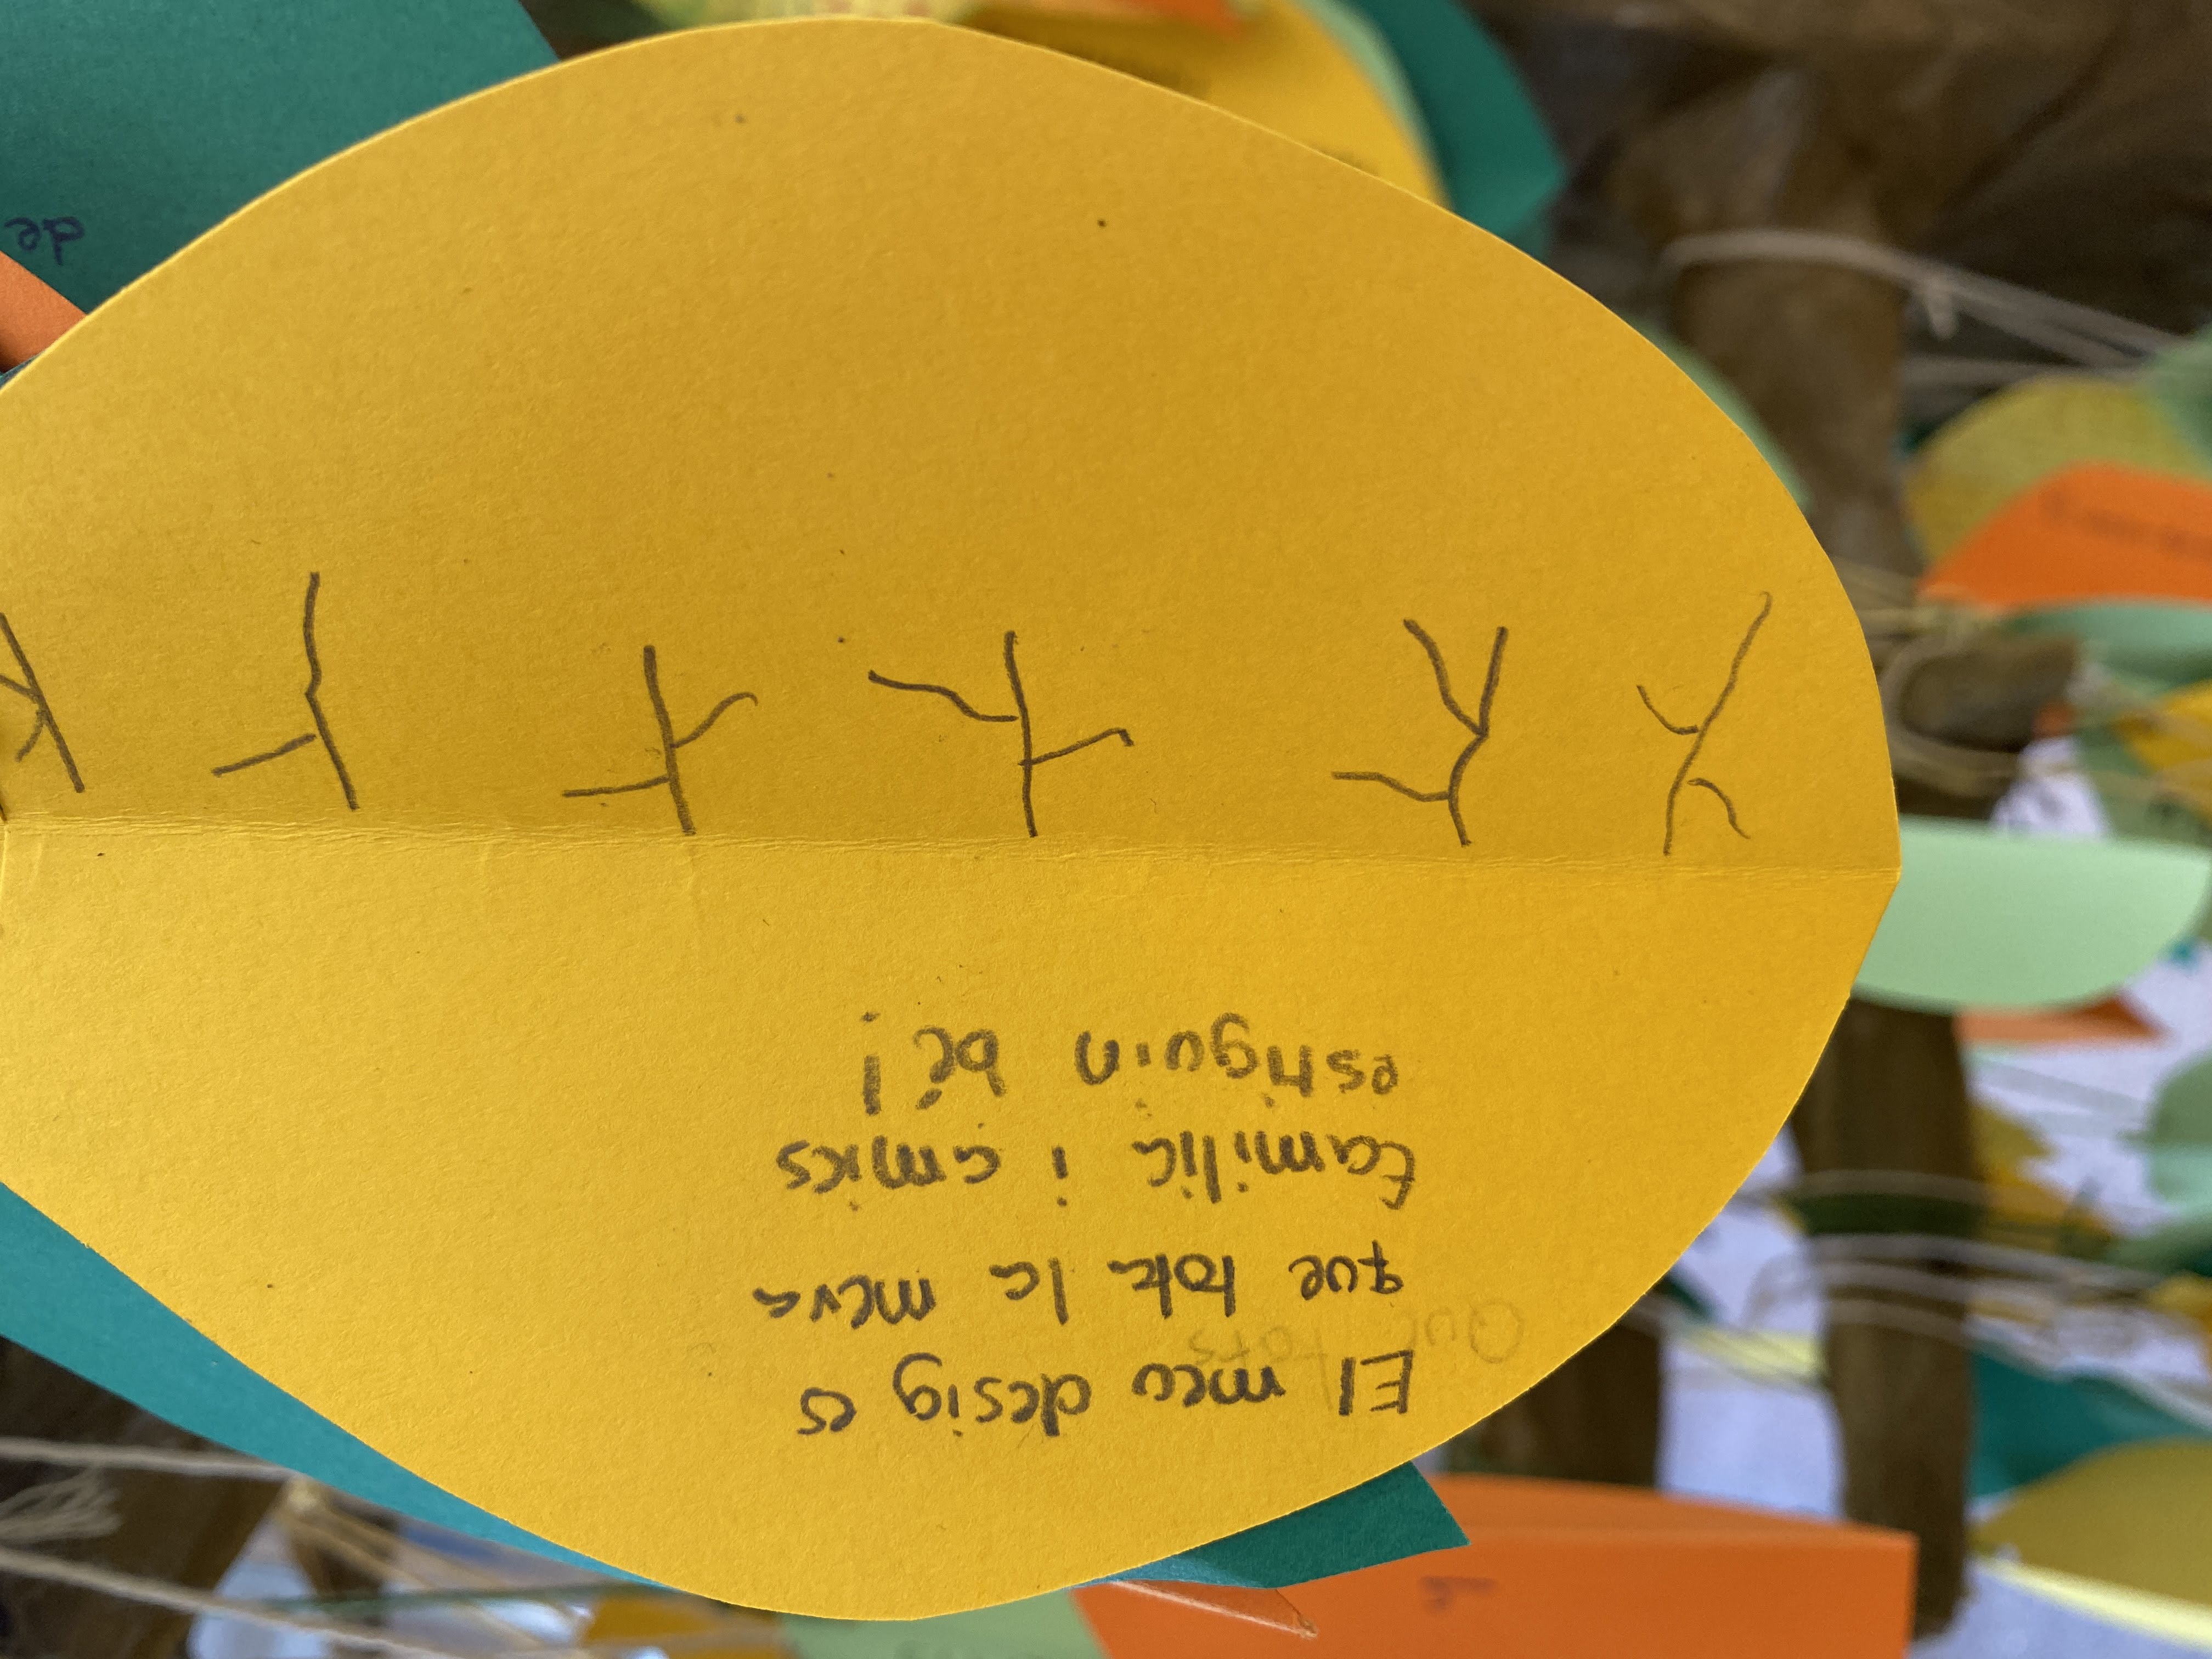 El meu desig es
que tota la meva
familia i amics
estiguin bé!
de